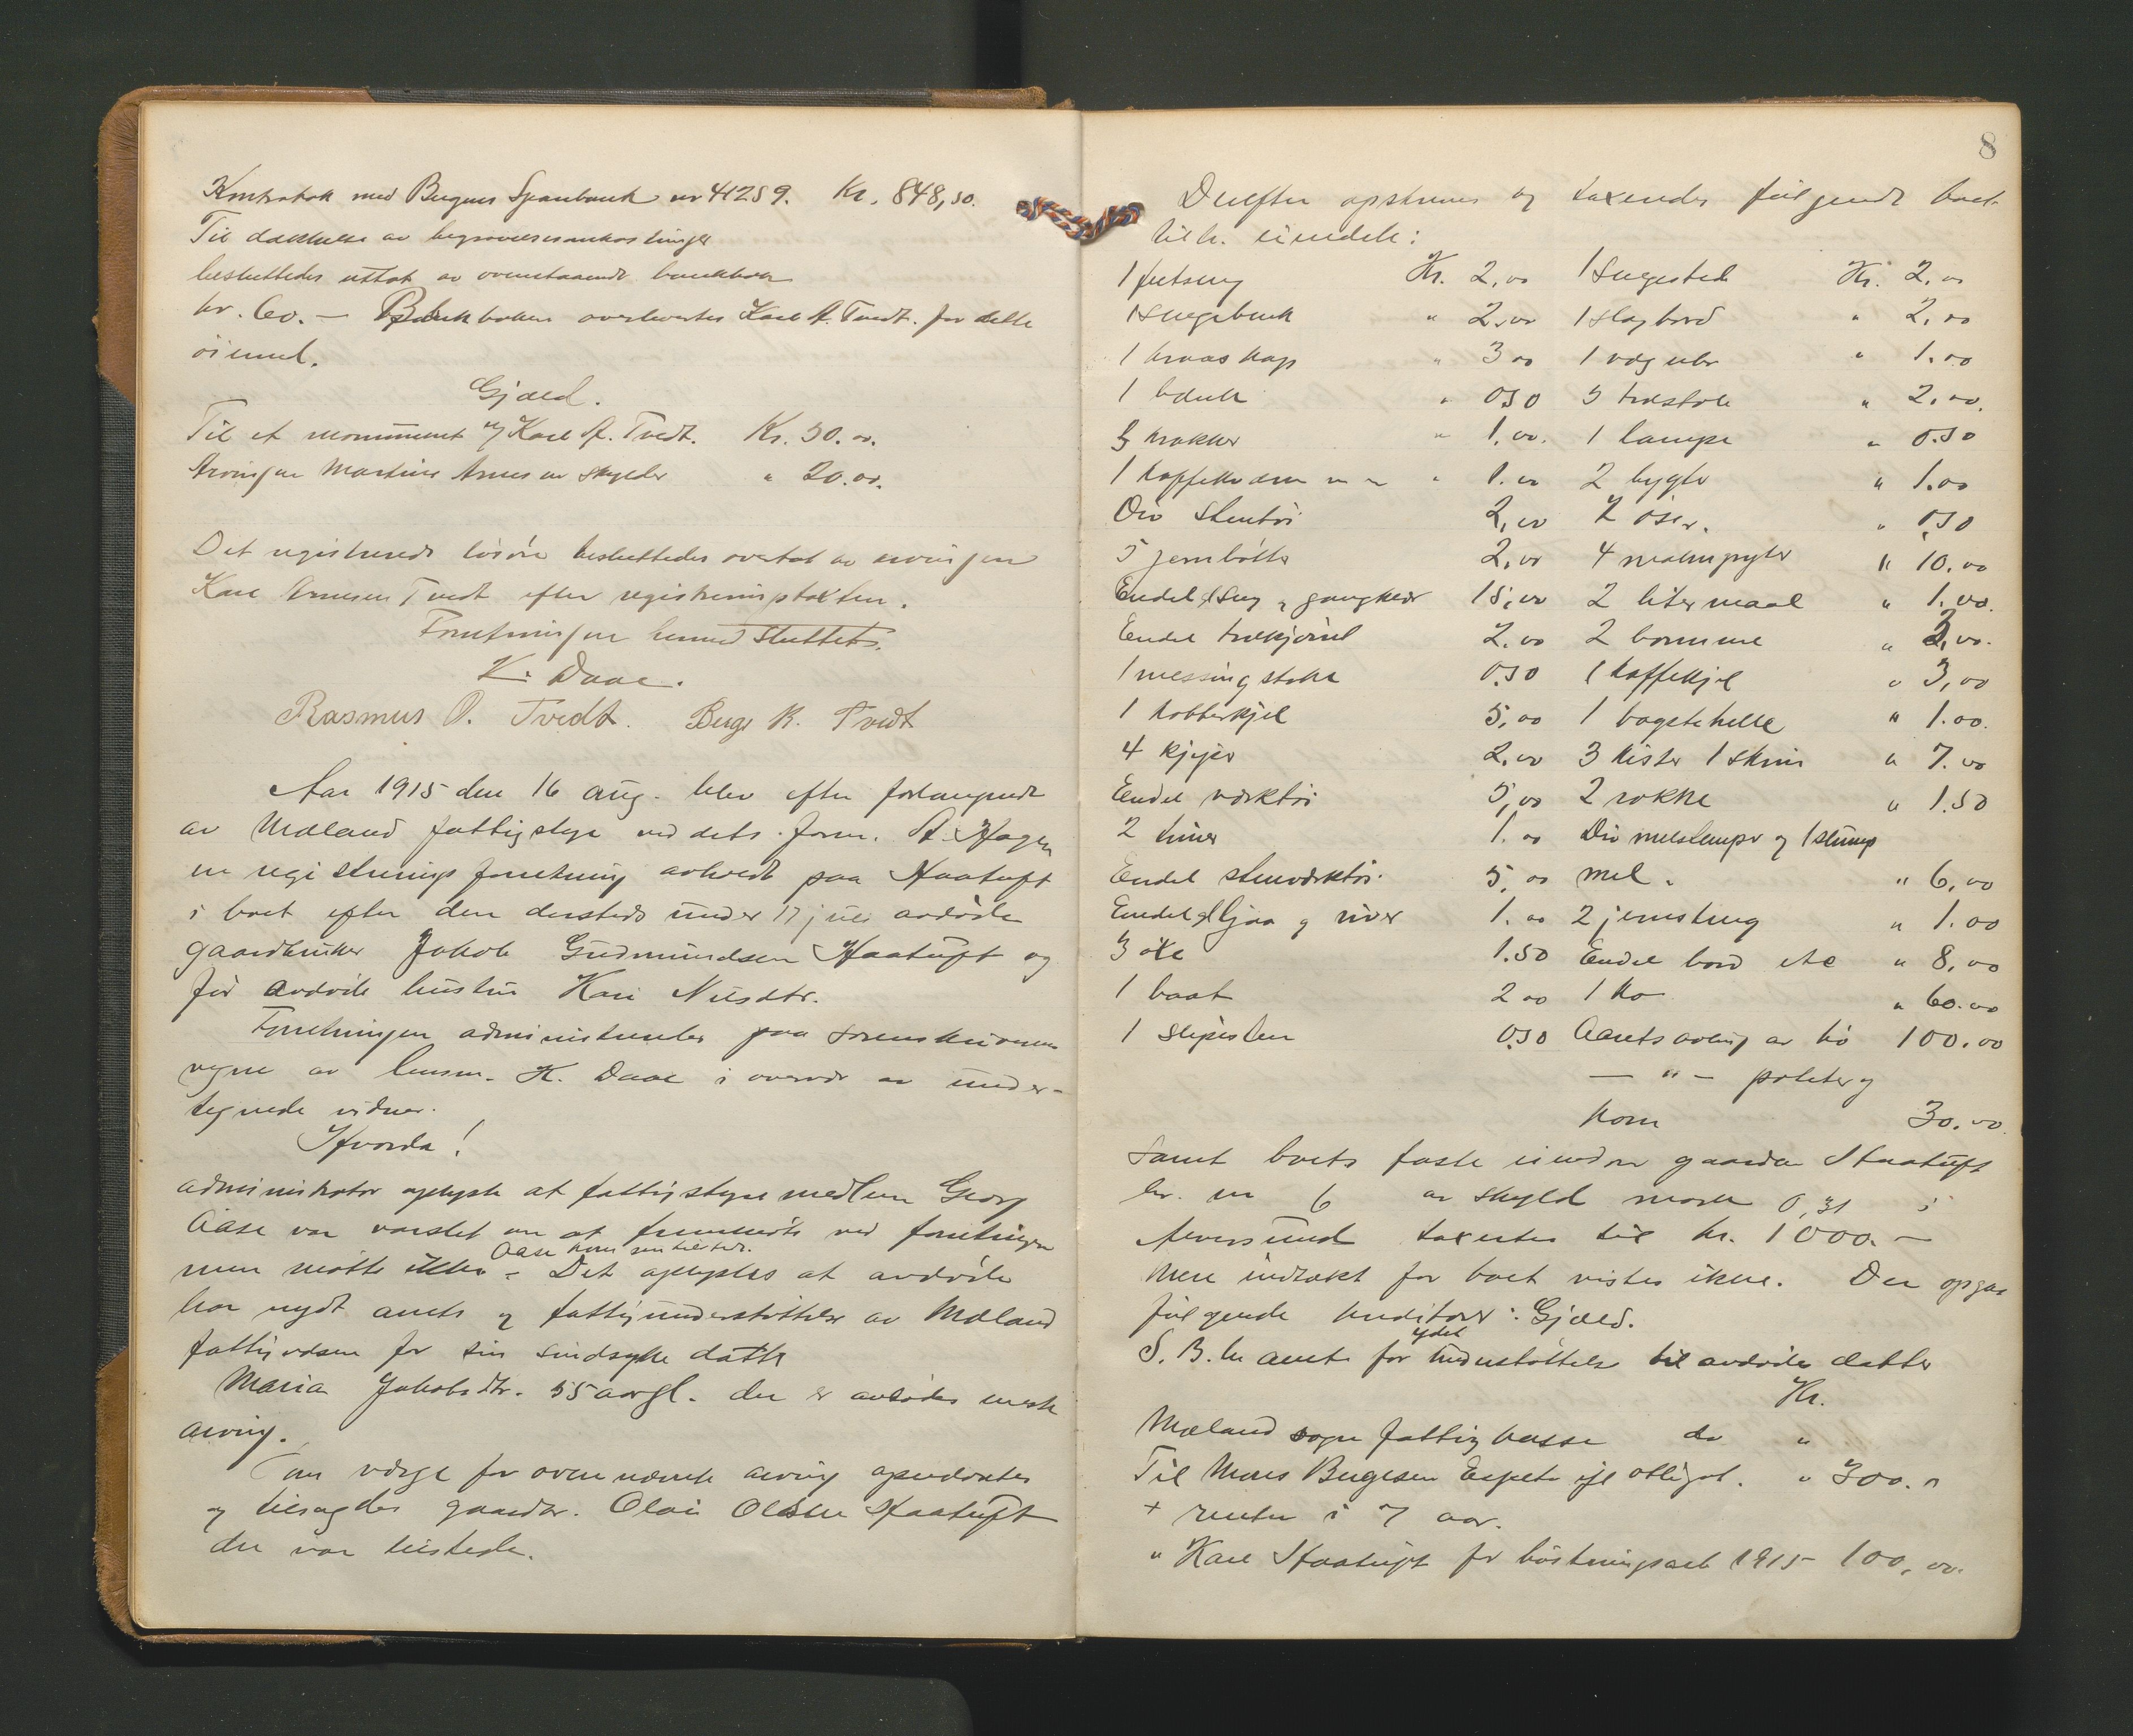 Kontrabok med Bergens Sparebank nr 41289. Kr. 848,50.
Til dækkelse av begravelsesomkostninger
besluttedes uttat av ovenstaaende bankbok
kr. 60.— Bankboken overleveres Karl A. Tvedt. for dette
øiemed.
Gjæld.
Til et monument v/ Karl A. Tvedt. Kr. 50.00.
Arvingen Martin Arnesen skylder " 20.00.
Det registrerede løsøre besluttedes overtat av arvingen
Karl Arnesen Tvedt efter registreringstaksten.
Forretningen hermed sluttet.
K. Daae.
Rasmus O. Tvedt. Berge R. Tvedt
Aar 1915 den 16 aug. blev efter forlangende
av Mæland fattigstyre ved dets form. A. Hagen
en registreringsforretning avholdt paa Haatuft
i boet efter den dersteds under 17 juli avdøde
gaardbruker Jakob Gudmundsen Haatuft og
før avdøde hustru Kari Nilsdtr.
Forretningen administreredes paa sorenskriverens
vegne av lensm. K. Daae i overvær av under-
tegnede vidner.
Hvorda!
Administrator oplyste at fattigstyremedlem Georg
Aase var varslet om at fremmøte ved forretningen
men møtte ikke. Aase kom senere tilstede. – Det oplystes at avdøde
har nydt amts og fattigunderstøttelse av Mæland
fattigvæsen for sin sindsyke datter
Maria Jakobsdtr. 55 aar gl. der er avdødes eneste
arving.
Som værge for ovennævnte arving opnævntes
og tilsagdes gaardbr. Olai Olsen Haatuft
der var tilstede.
8
Derefter opskreves og taxeredes følgende boet
tilh. eiendele:
1 fjetseng Kr. 2,00 1 sengested Kr. 2,00
1 sengebenk " 2,00 1 slagbord " 2,00
1 kraaskap " 3 00 1 væguhr " 1.00
1 bænk " 0,50 5 træstole " 2.00.
3 krakker " 1,00. 1 lampe " 0.50
1 kaffekværn m m " 1.00 2 lygter " 1.00
Div stentøi 2,00 2 øser. " 0,50
5 jernbøtter 2,00 4 malmgryter " 10.00
Endel seng og gangklær 15,00 2 litermaal " 1.00.
Endel trækjørel 2.00 2 bomme " 2,00.
1 messingstake 0.50 1 kaffekjel " 3,00
1 kobberkjel 5,00 1 bagstehelle " 1.00.
4 kjyer 2,00 3 kister 1 skrin " 7.00
Endel værktøi 5,00 2 rokke " 1.50
2 tiner 1.00 Div melslumper og 1 slump
Endel stenværktøi 5,00 mel. " 6,00
Endel ljaa og river 1.00 2 jernstang " 1.00
3 øxe 1.50 Endel bord etc " 8,00
1 baat 2 00 1 ko " 60.00
1 slipesten 0.50 Aarets avling av hø 100.00
— " — poteter og
korn 30.00.
Samt boets faste eiendom gaarden Haatuft
br. nr 6 av skyld mark 0,31 i
Alversund taxertes til kr. 1000.—
Mere indtækt for boet vistes ikke. Der opgav
følgende kreditorer: Gjæld.
S. B.hus amt for ydet understøttelse til avdødes datter
Kr.
Mæland sogns fattigkasse do "
Til Mons Bergesen Espeto ifl obligat. " 300.
+ renter i 7 aar.
" Karl Haatuft for høstningsarb 1915 100,00.